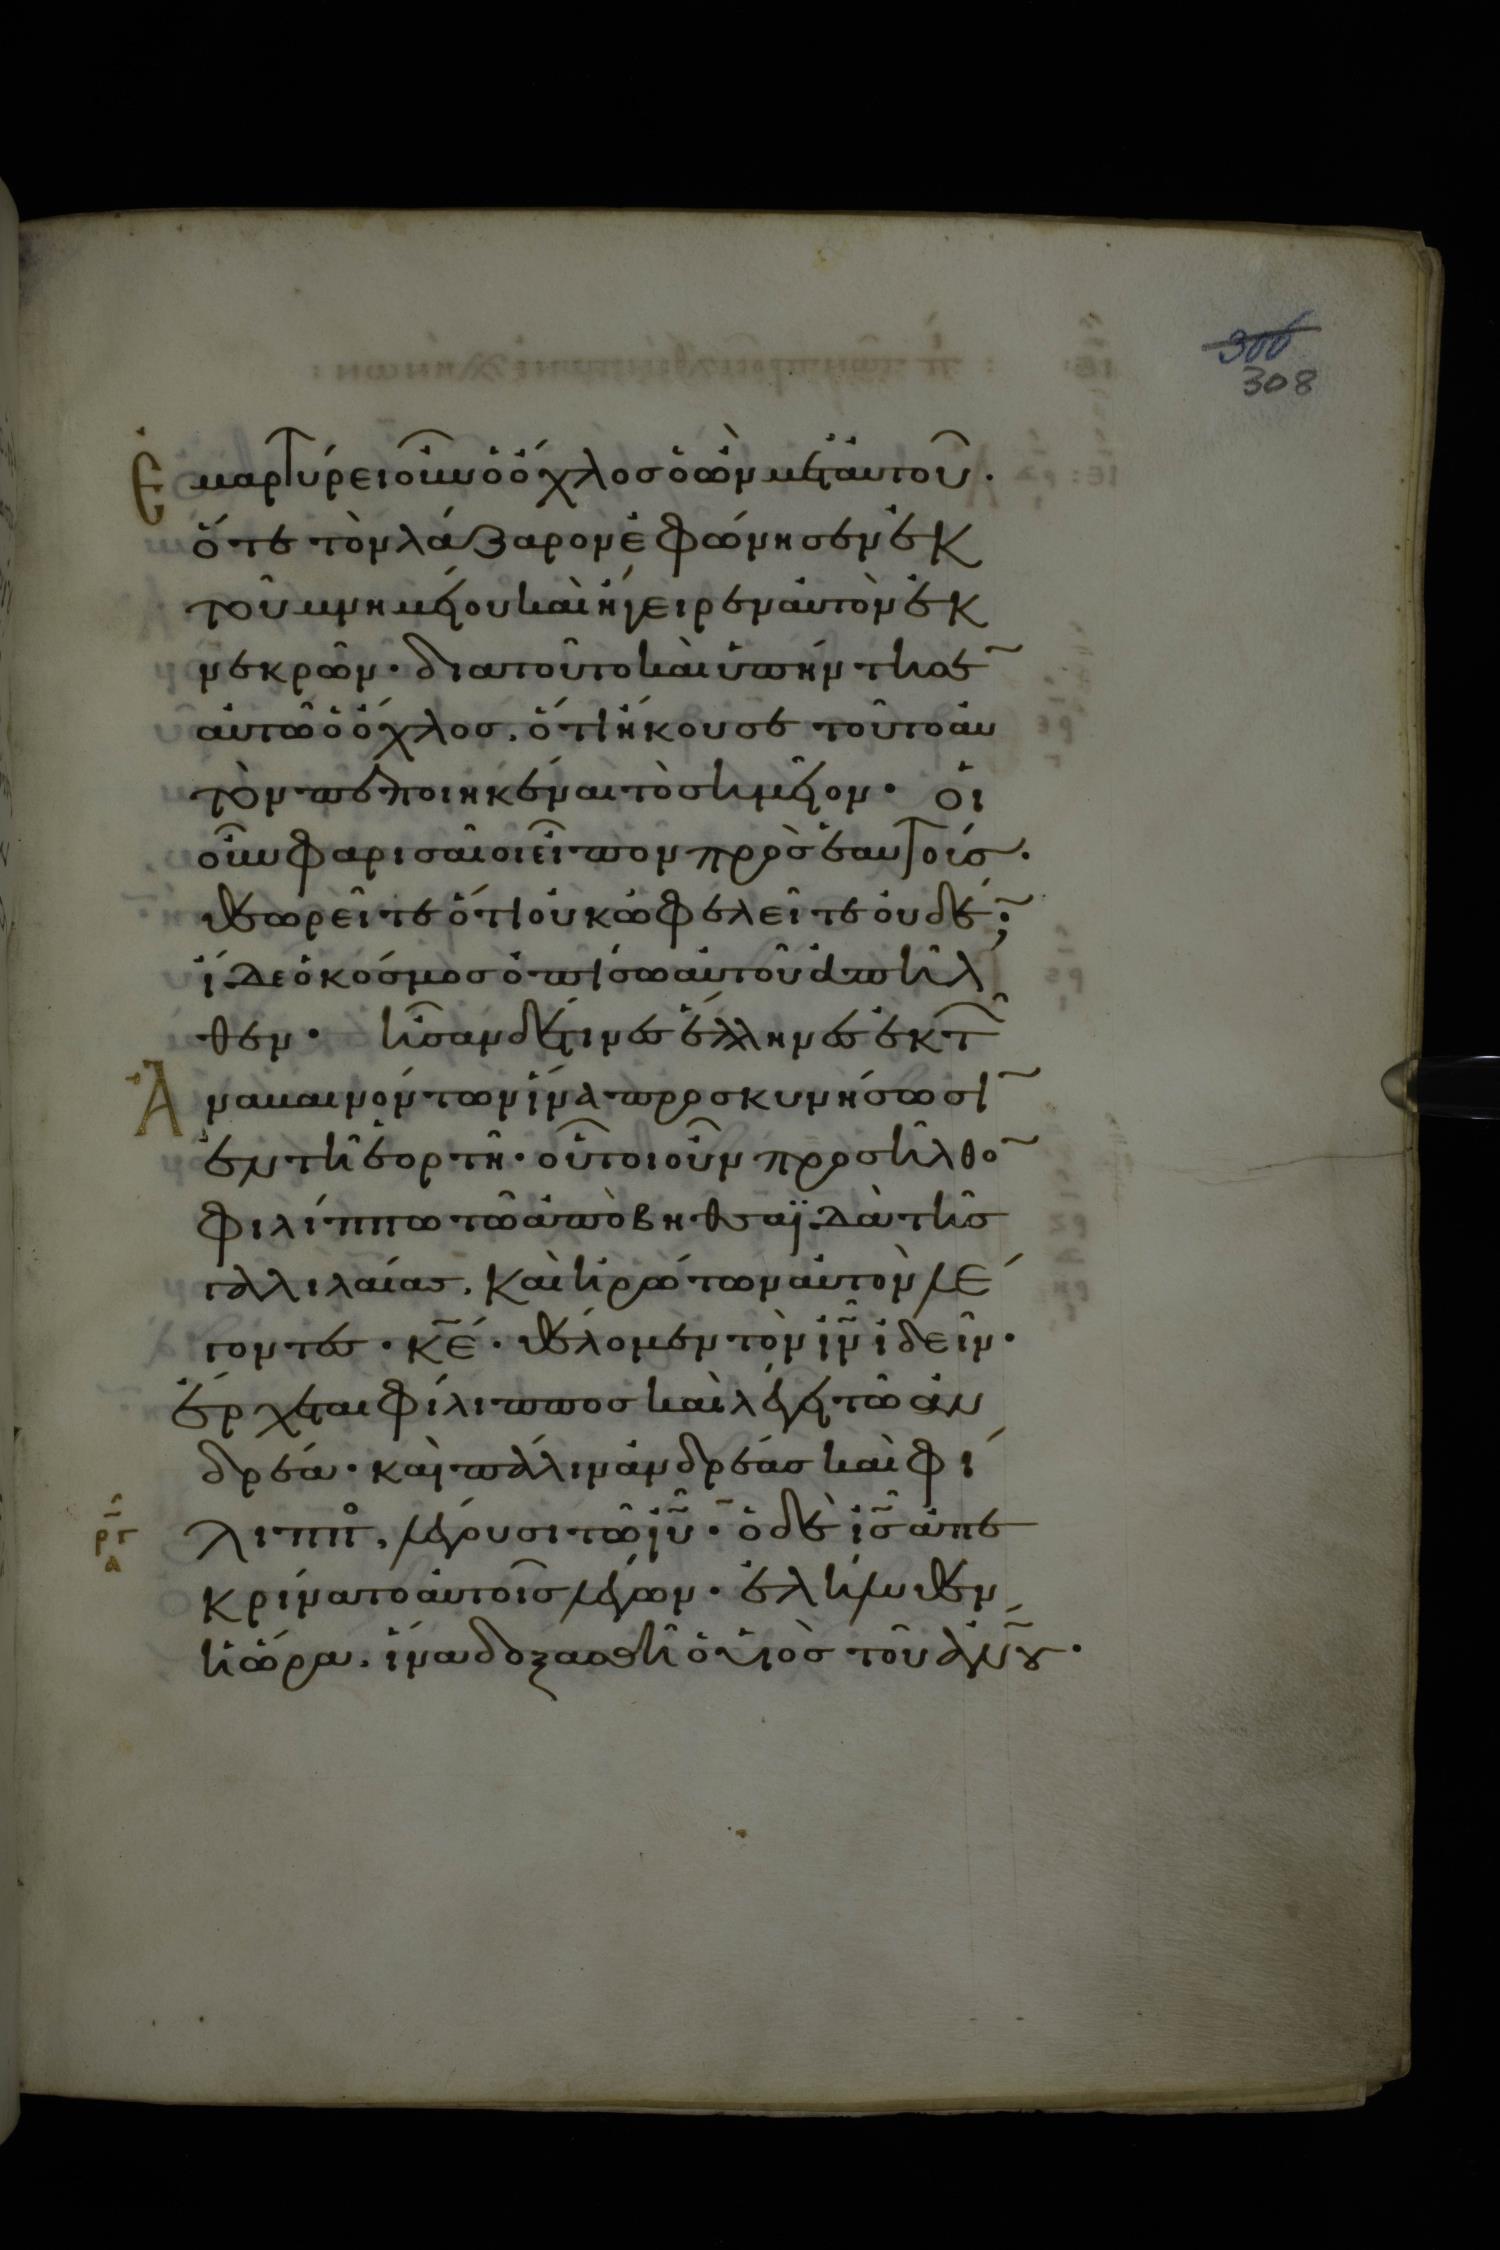 300
308
Ἐμαρτύρει οὖν ὁ ὄχλος ὁ ὢν μετ' αὐτοῦ.
ὅτε τὸν λάζαρον ἐφώνησεν ἐκ
τοῦ μνημείου καὶ ἤγειρεν αὐτὸν ἐκ
νεκρῶν· διατοῦτο καὶ ὑπήντησε̃
αὐτῶ ὁ ὄχλος. ὅτι ἤκουσε τοῦτο αὐ
τὸν πεποιηκέναι τὸ σημεῖον· οἱ
οὖν φαρισαῖοι εἶπον πρὸς ἑαυτοίς.
θεωρεῖτε ὅτι οὐκ ὠφελεῖτε οὐδέ̃;
ἴδε ὁ κόσμος ὀπίσω αὐτοῦ ἀπῆλ
θεν· ἦσαν δέ τινες ἕλληνες ἐκ τῶ̃
Ἀναβαινόντων ἵνα προσκυνήσωσῖ
ἐν τῆ ἑορτῆ· οὗτοι οὖν προσῆλθο̃
φιλίππω τῶ ἀπὸ βηθσαϊδὰ τῆς
γαλιλαίας. καὶ ἠρώτων αὐτὸν λέ
γοντες· κ̅ε̅· θέλομεν τὸν ι̅ν̅ ἰδεῖν·
ἔρχεται φίλιππος καὶ λέγει τῶ ἀν
δρέα· καὶ πάλιν ἀνδρέας καὶ φί
ρ̅γ α
λιππο, λέγουσι τῶ ι̅υ̅· ὁ δὲ ι̅ς̅ ἀπε
κρίνατο αὐτοῖς λέγων· ἐλήλυθεν
ἡ ὥρα. ἵνα δοξασθῆ ὁ υἱὸς τοῦ ἀ̅ν̅ου·